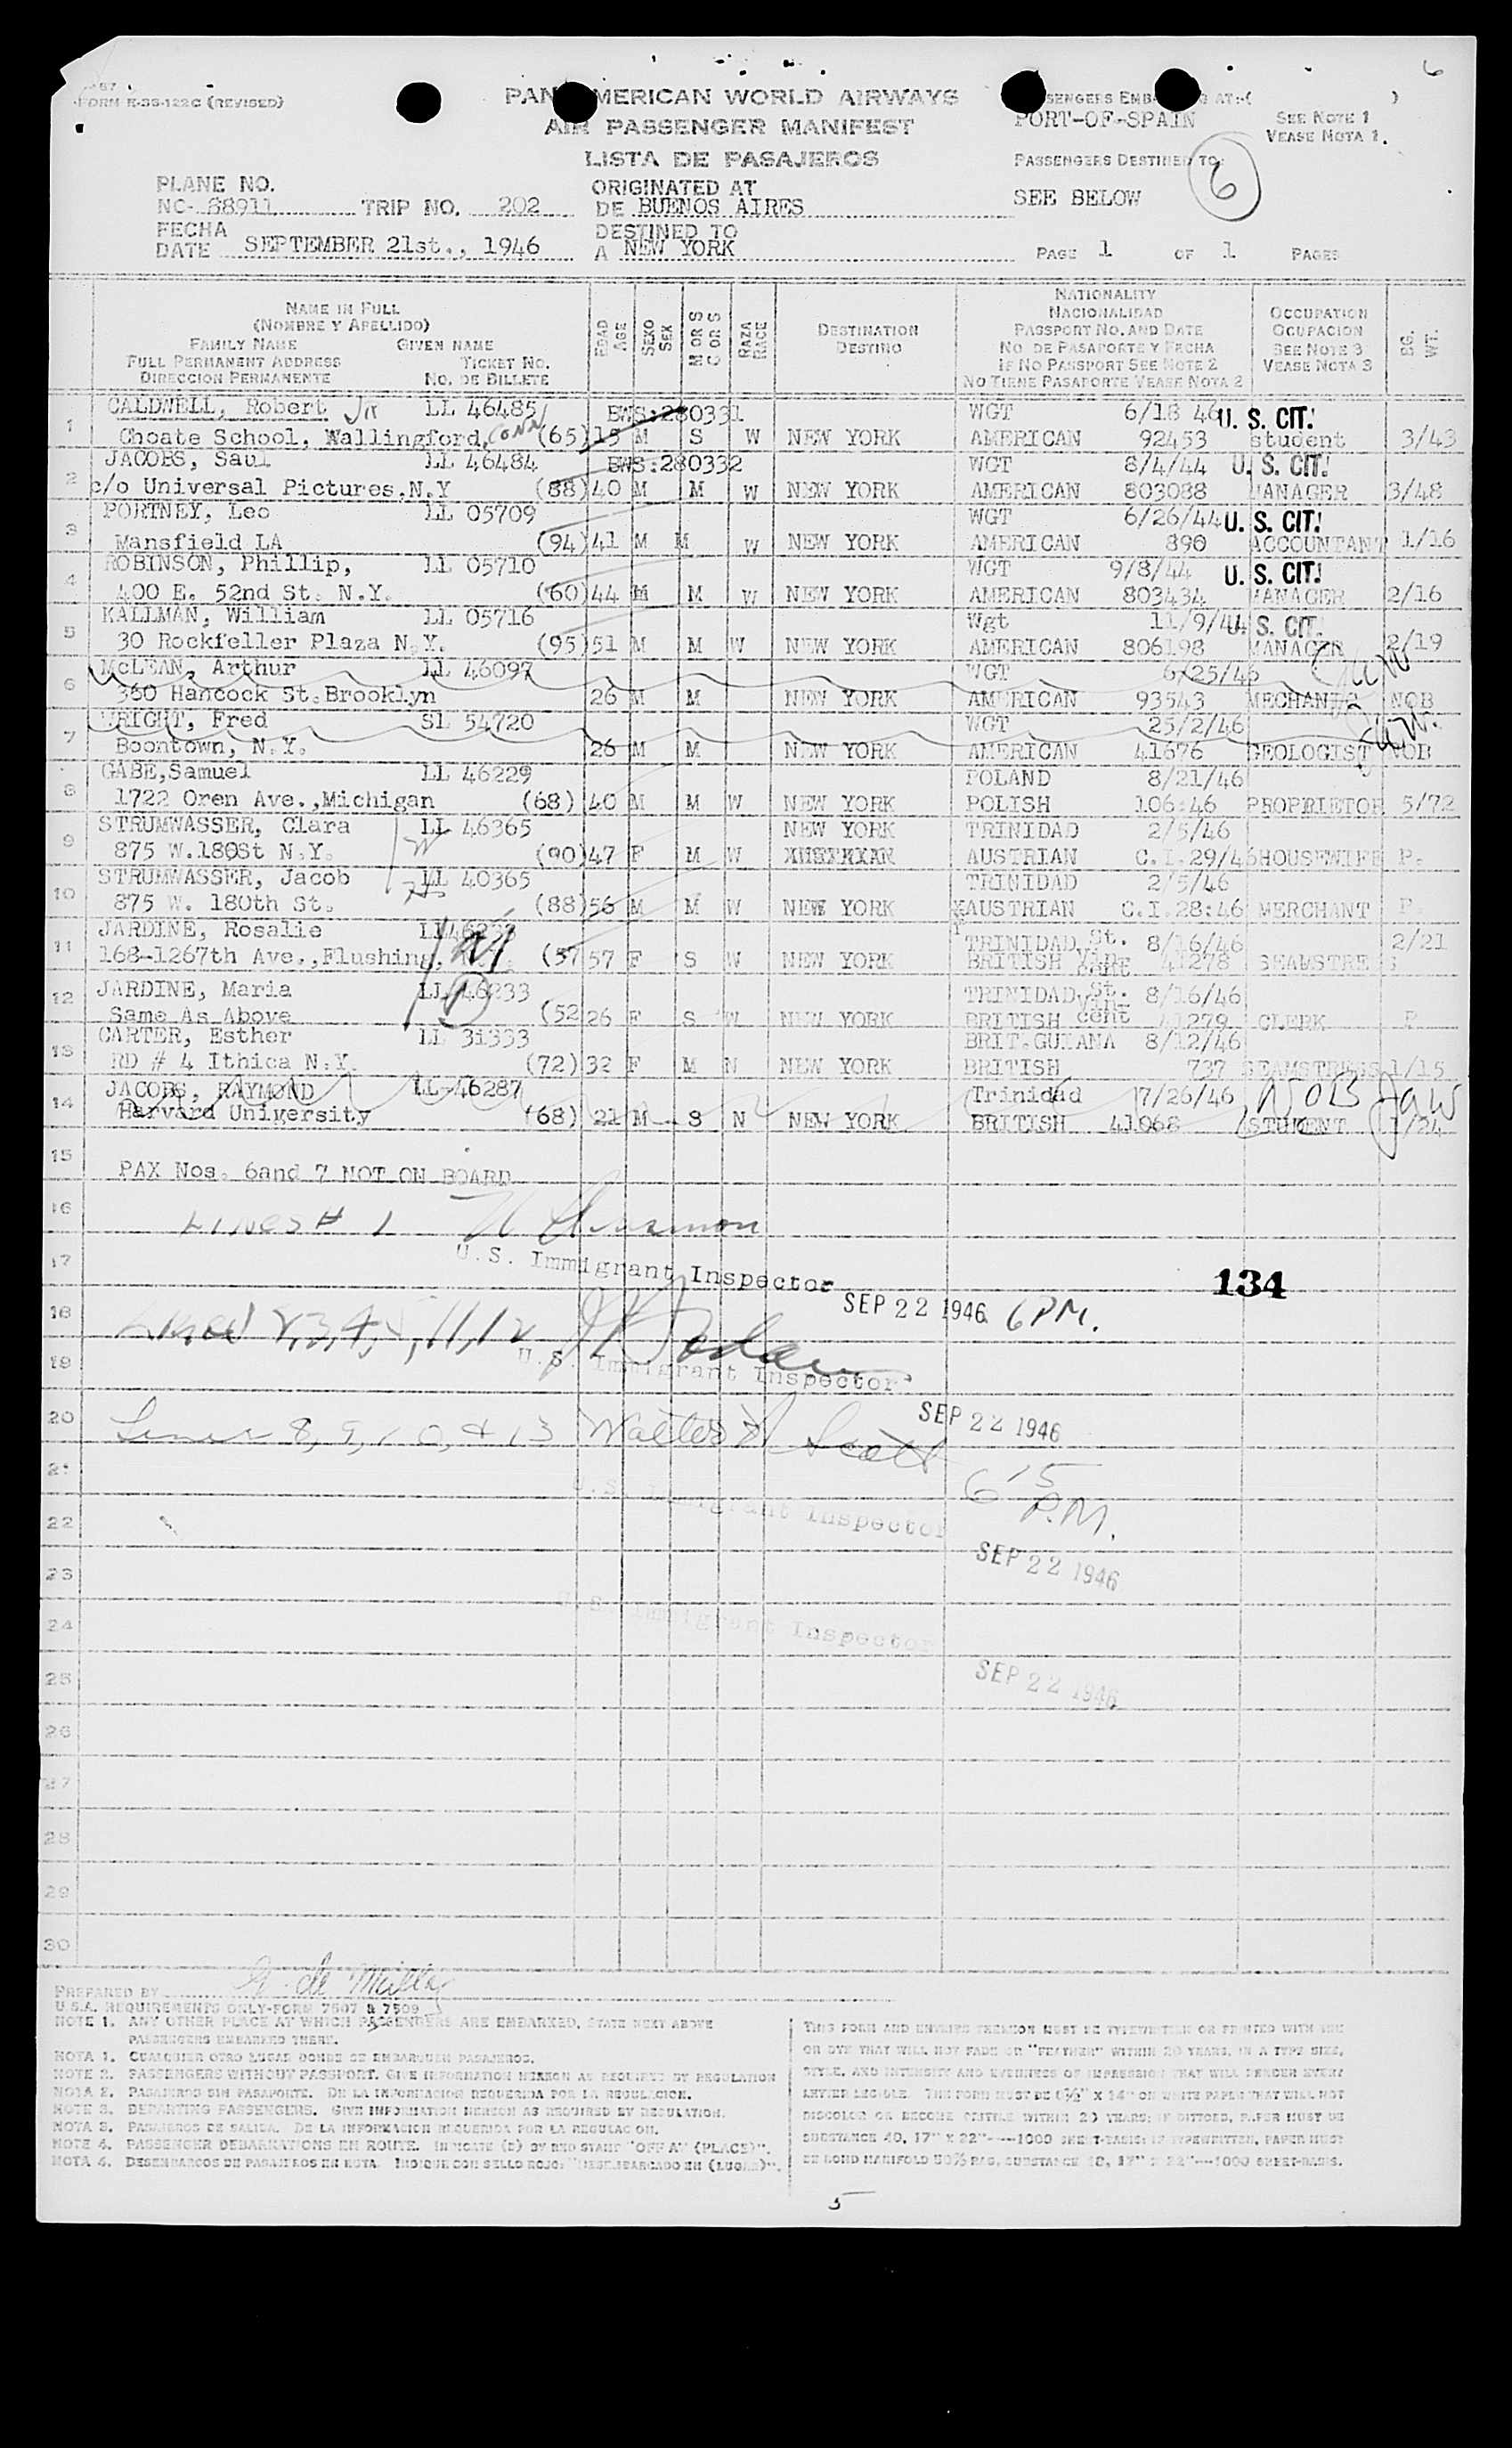 6
FORM K-SS-122C (REVISED)
PAN AMERICAN WORLD AIRWAYS
AIR PASSENGER MANIFEST
LISTA DE PASAJEROS
PORT-OF-SPAIN
SEE NOTE 1
VEASE NOTA 1.
PASSENGERS DESTINED TO:
SEE BELOW
6
PLANE NO.
NC- 88911 TRIP NO. 202
ORIGINATED AT
DE BUENOS AIRES
FECHA
DATE SEPTEMBER 21st., 1946
DESTINED TO
A NEW YORK
PAGE 1 OF 1 PAGES
NAME IN FULL
(NOMBRE Y APELLIDO)
FAMILY NAME GIVEN NAME
FULL PERMANENT ADDRESS TICKET NO.
DIRECCION PERMANENTE NO. DE BILLETE
EDAD AGE
SEXO SEX
M OR S C OR S
RAZA RACE
DESTINATION
DESTINO
NATIONALITY
NACIONALIDAD
PASSPORT NO. AND DATE
NO. DE PASAPORTE Y FECHA
IF NO PASSPORT SEE NOTE 2
NO TIENE PASAPORTE VEASE NOTA 2
OCCUPATION
OCUPACION
SEE NOTE 3
VEASE NOTA 3
BG. WT.
1 CALDWELL, Robert Jr LL 46485 BWS:280331 WGT 6/18 46 U. S. CIT.
Choate School, Wallingford, CONN (65) 15 M S W NEW YORK AMERICAN 92453 student 3/43
2 JACOBS, Saul LL 46484 BWS:280332 WGT 8/4/44 U. S. CIT.
c/o Universal Pictures,N.Y (88) 40 M M W NEW YORK AMERICAN 803088 MANAGER 3/48
3 PORTNEY, Leo LL 05709 WGT 6/26/44 U. S. CIT.
Mansfield LA (94) 41 M M W NEW YORK AMERICAN 890 ACCOUNTANT 1/16
4 ROBINSON, Phillip, LL 05710 WGT 9/8/44 U. S. CIT.
400 E. 52nd St. N.Y. (60) 44 M M W NEW YORK AMERICAN 803434 MANAGER 2/16
5 KALLMAN, William LL 05716 Wgt 11/9/44 U. S. CIT.
30 Rockfeller Plaza N.Y. (95) 51 M M W NEW YORK AMERICAN 806198 MANAGER 2/19
6 McLEAN, Arthur LL 46097 WGT 6/25/46
360 Hancock St.Brooklyn 26 M M NEW YORK AMERICAN 93543 MECHANIC NOB
7 WRIGHT, Fred SL 54720 WGT 25/2/46
Boontown, N.Y. 26 M M NEW YORK AMERICAN 41676 GEOLOGIST NOB
8 GABE,Samuel LL 46229 POLAND 8/21/46
1722 Oren Ave.,Michigan (68) 40 M M W NEW YORK POLISH 106:46 PROPRIETOR 5/72
9 STRUMWASSER, Clara LL 46365 NEW YORK TRINIDAD 2/5/46
875 W.180St N.Y. (90) 47 F M W AUSTRIAN C.I.29/46 HOUSEWIFE P.
10 STRUMWASSER, Jacob LL 40365 TRINIDAD 2/5/46
875 W. 180th St. (88) 56 M M W NEW YORK AUSTRIAN C.I.28:46 MERCHANT P.
11 JARDINE, Rosalie LL 46233 TRINIDAD, St. 8/16/46 2/21
168-1267th Ave.,Flushing, (57 57 F S W NEW YORK BRITISH Vincent 41278 SEAMSTRESS
12 JARDINE, Maria LL 46233 TRINIDAD, St. 8/16/46
Same As Above (52 26 F S W NEW YORK BRITISH Vincent 41279 CLERK P.
13 CARTER, Esther LL 31333 BRIT.GUIANA 8/12/46
RD # 4 Ithica N.Y. (72) 32 F M N NEW YORK BRITISH 737 SEAMSTRESS 1/15
14 JACOBS, RAYMOND LL 46287 Trinidad 7/26/46 NOB JAW
Harvard University (68) 21 M S N NEW YORK BRITISH 41068 STUDENT 1/24
15 PAX Nos. 6and 7 NOT ON BOARD
16 Lines # 1
17 U.S. Immigrant Inspector 134
18 SEP 22 1946 6 PM.
Lines 2,3,4,5,11,12
19 U.S. Immigrant Inspector
20 SEP 22 1946
Lines 8, 9, 10, & 13 Walter A Scott
21 6 15 P.M.
22 U.S. Immigrant Inspector
23 SEP 22 1946
24 U.S. Immigrant Inspector
25 SEP 22 1946
26
27
28
29
30
PREPARED BY
U.S.A. REQUIREMENTS ONLY-FORM 7507 & 7509
NOTE 1. ANY OTHER PLACE AT WHICH PASSENGERS ARE EMBARKED, STATE NEXT ABOVE
PASSENGERS EMBARKED THERE.
NOTA 1. CUALQUIER OTRO LUGAR DONDE SE EMBARQUEN PASAJEROS.
NOTE 2. PASSENGERS WITHOUT PASSPORT. GIVE INFORMATION HEREON AS REQUIRED BY REGULATION
NOTA 2. PASAJEROS SIN PASAPORTE. DE LA INFORMACION REQUERIDA POR LA REGULACION.
NOTE 3. DEPARTING PASSENGERS. GIVE INFORMATION HEREON AS REQUIRED BY REGULATION.
NOTA 3. PASAJEROS DE SALIDA. DE LA INFORMACION REQUERIDA POR LA REGULACION.
NOTE 4. PASSENGER DEBARKATIONS EN ROUTE. INDICATE (D) BY RED STAMP "OFF AT (PLACE)".
NOTA 4. DESEMBARCOS DE PASAJEROS EN RUTA. INDIQUE CON SELLO ROJO: "DESEMBARCADO EN (LUGAR)".
THIS FORM AND ENTRIES THEREON MUST BE TYPEWRITTEN OR PRINTED WITH INK
OR DYE THAT WILL NOT FADE OR "FEATHER" WITHIN 20 YEARS, IN A TYPE SIZE,
STYLE, AND INTENSITY AND EVENNESS OF IMPRESSION THAT WILL RENDER EVERY
LETTER LEGIBLE. THE FORM MUST BE 8½" X 14" ON WHITE PAPER THAT WILL NOT
DISCOLOR OR BECOME BRITTLE WITHIN 20 YEARS; IF DITTOED, PAPER MUST BE
SUBSTANCE 40, 17" X 22"----1000 SHEET-BASIS; IF TYPEWRITTEN, PAPER MUST
BE BOND MANIFOLD 50% RAG, SUBSTANCE 18, 17" X 22"---1000 SHEET-BASIS.
5